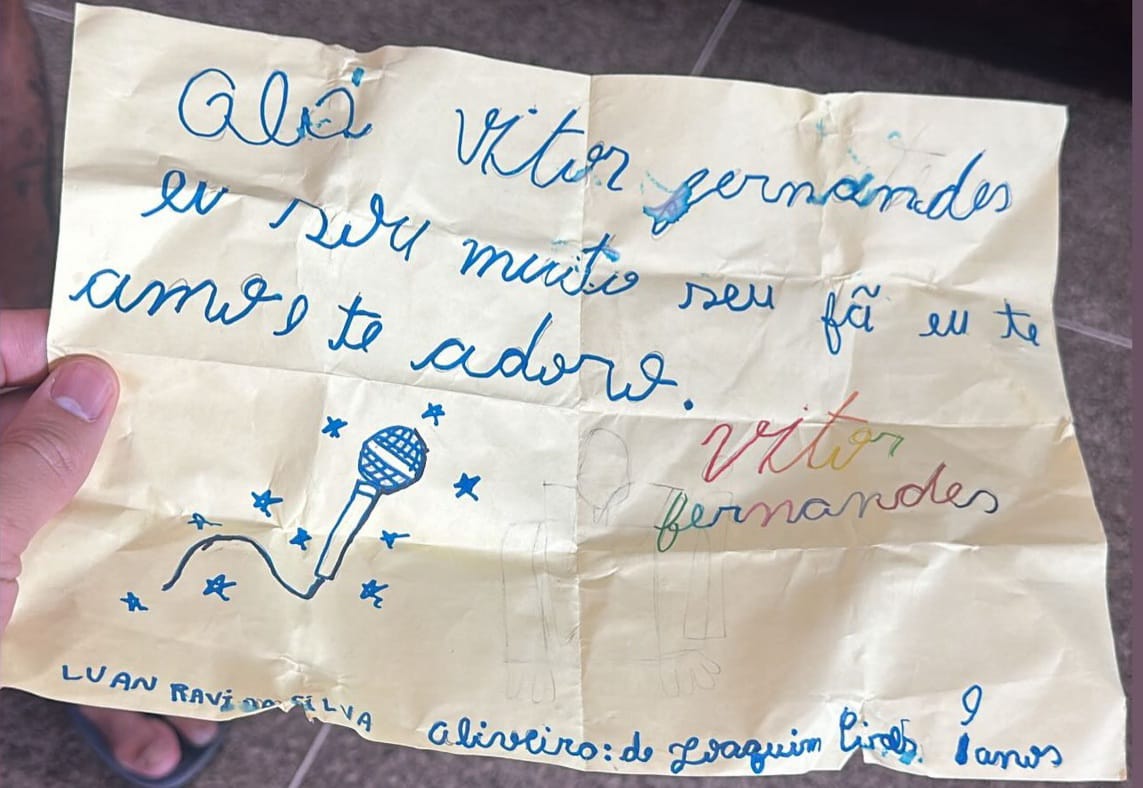 Olá Vitor fernandes
eu sou muito seu fã eu te
amo e te adoro.
Vitor
fernandes
LUAN RAVI DA SILVA
Oliveira: de Joaquim Pires
9 anos